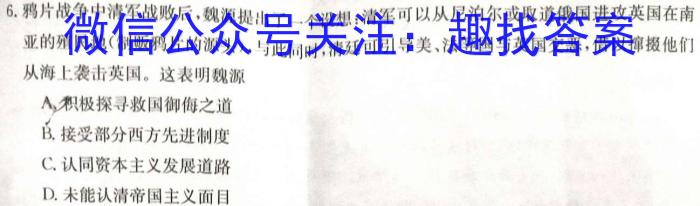 6. 鸦片战争中清军战败后,魏源提出 设想:清军可以从尼泊尔或取道俄国进攻英国在南
微信公众号关注:趣找答案
亚的殖民地 与此同时,清廷可引导美、法 英国 撺掇他们
从海上袭击英国。这表明魏源
A. 积极探寻救国御侮之道
B. 接受部分西方先进制度
C. 认同资本主义发展道路
D. 未能认清帝国主义面目